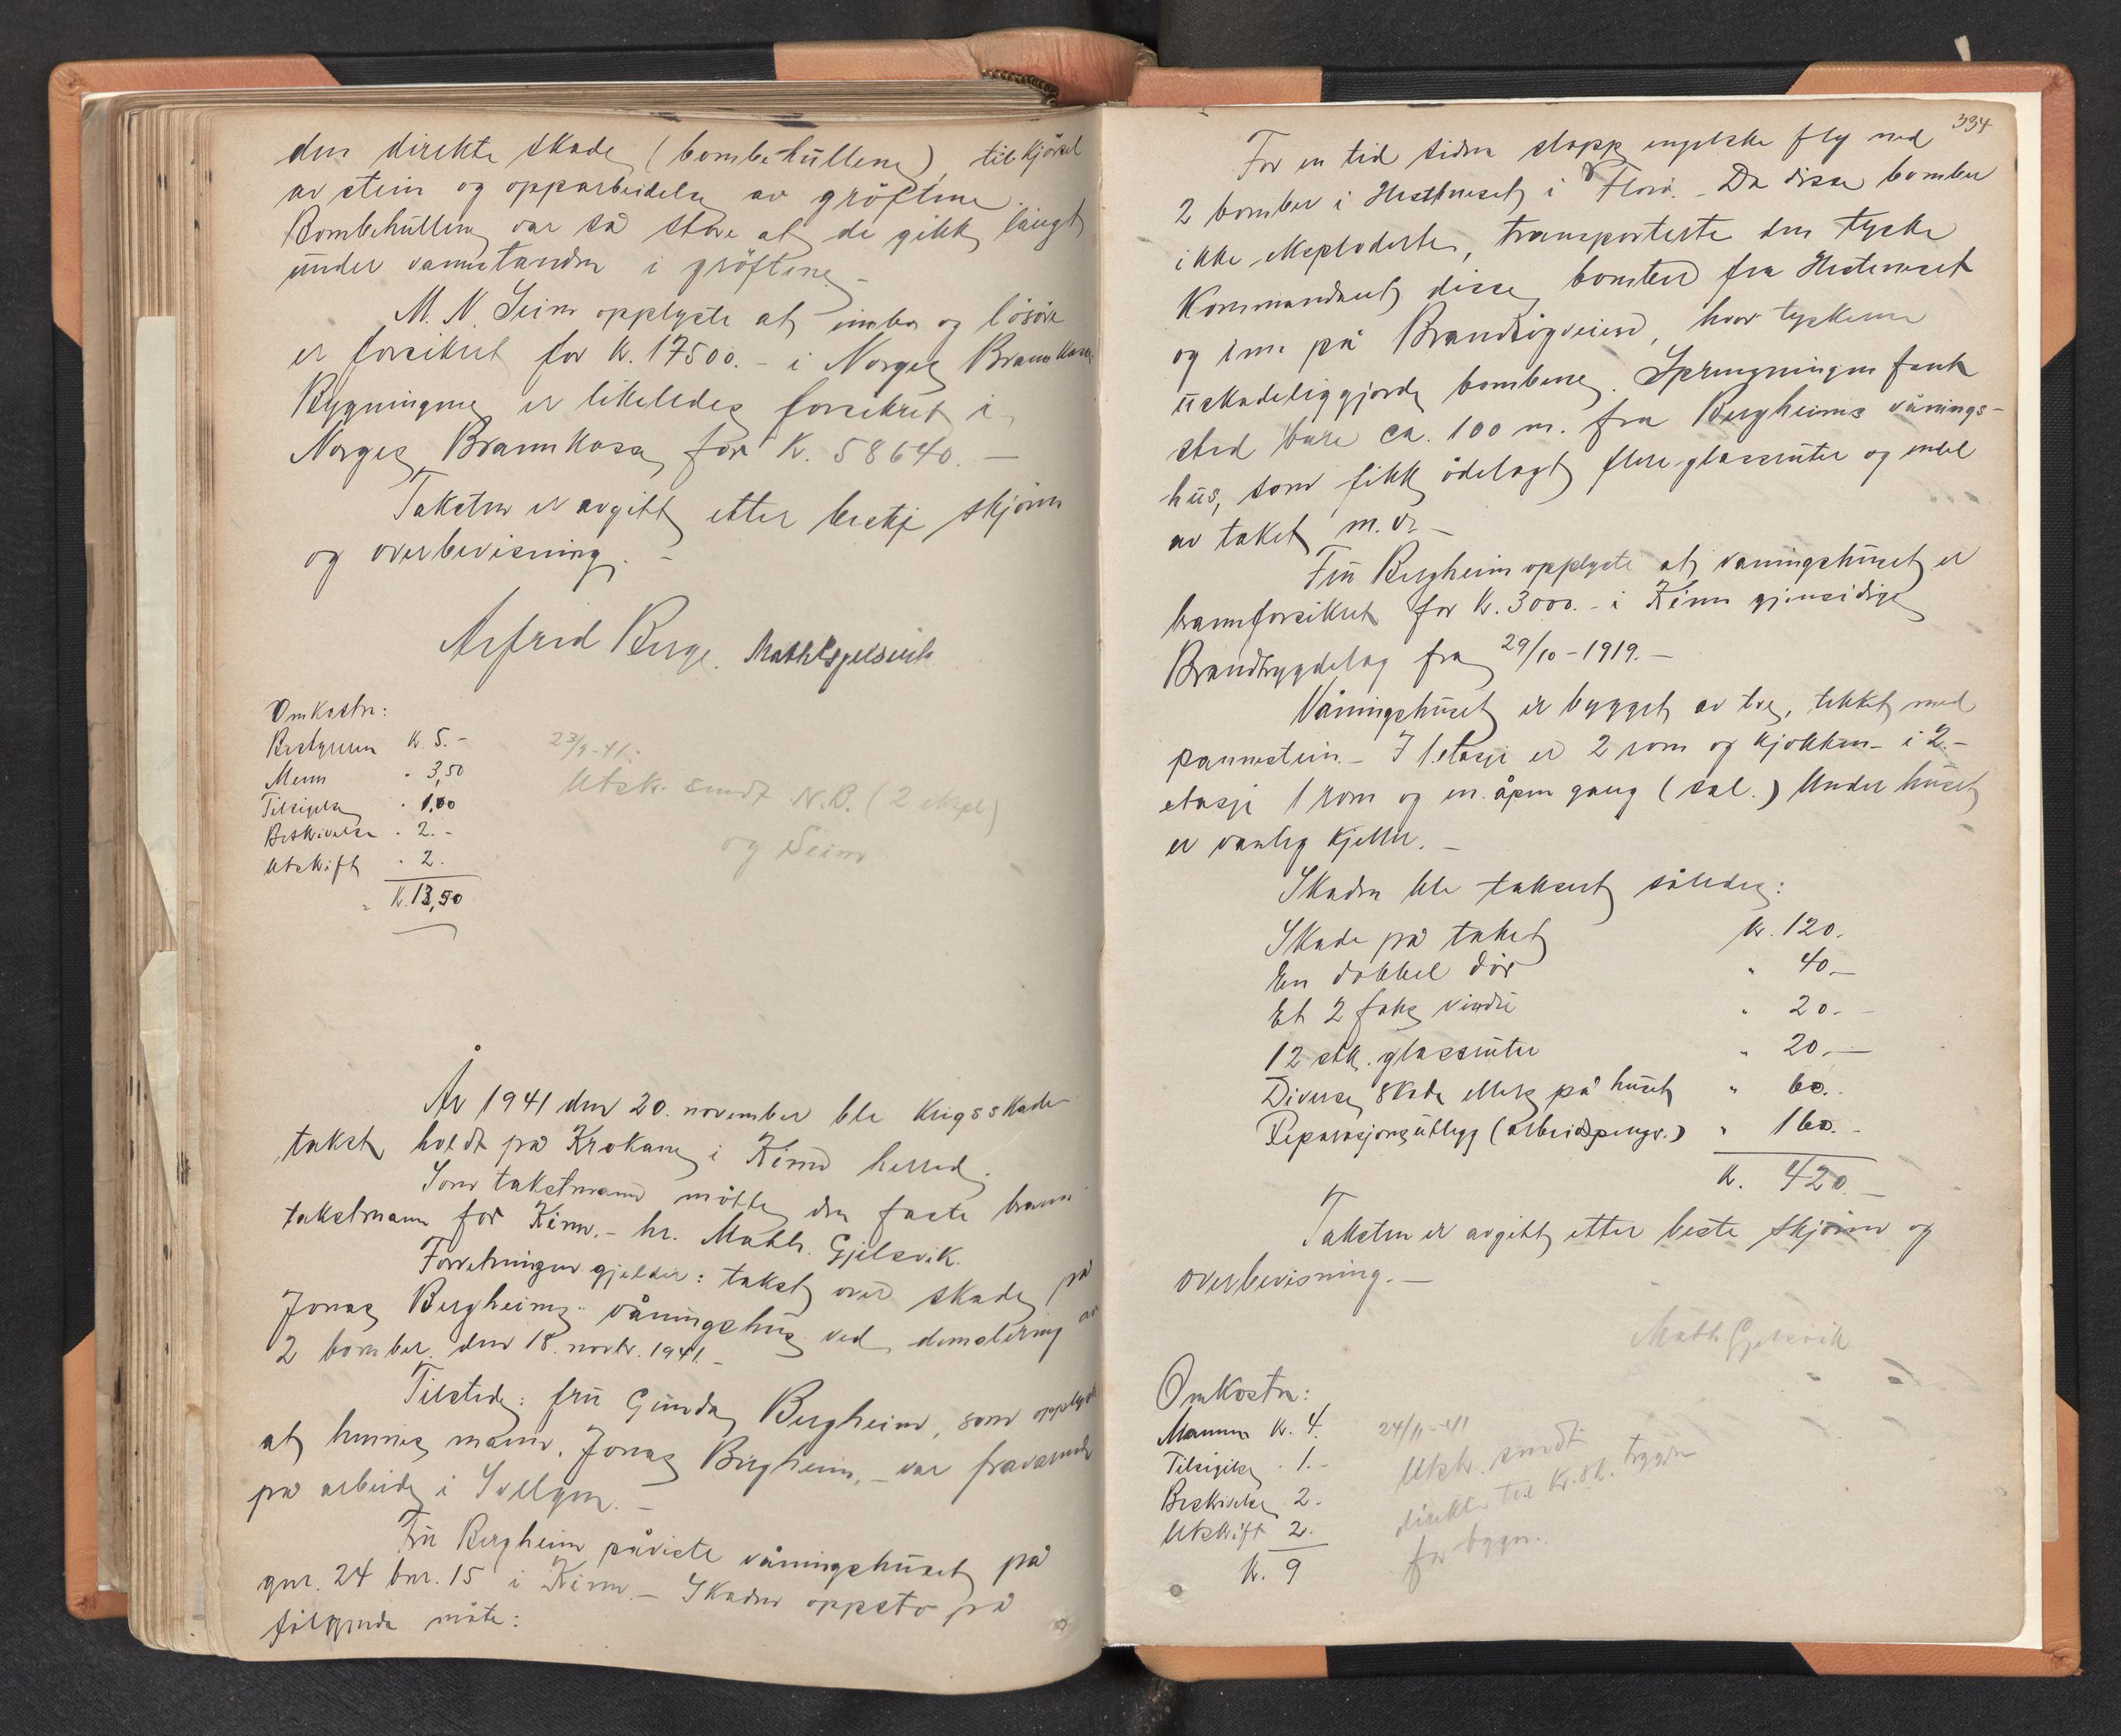 den direkte skade (bombehullene), tilkjörsel
av stein og opparbeidelse av gröftene.
Bombehullene var så store at de gikk langt
under vannstanden i gröftene. -
M. N. Seim opplyste at innbo og lösöre
er forsikret for kr. 17500.- i Norges Brannkasse.
Bygningene er likeledes forsikret i
Norges Brannkasse for kr. 58640. -
Taksten er avgitt etter beste skjönn
og overbevisning. -
Asfrid Berge. Math Gjelsvik
Omkostn:
Bestyreren kr. 5.-
Menn " 3,50
Tilsigelse " 1,00
Beskrivelse " 2.-
Utskrift " 2.
kr. 13,50
23/9-41.
Utskr. sendt N.B. (2 ekspl)
og Seim
År 1941 den 20. november ble krigsskade-
takst holdt på Krokane i Kinn herred.
Som takstmann mötte den faste brann-
takstmann for Kinn, - hr. Math. Gjelsvik.
Forretningen gjelder: takst over skade på
Jonas Bergheims våningshus ved demolering av
2 bomber den 18. novbr. 1941. -
Tilstede: fru Gunda Bergheim, som opplyste
at hennes mann, Jonas Bergheim, - var fraværende
på arbeide i Svelgen. -
Fru Bergheim påviste våningshuset på
gnr. 24 bnr. 15 i Kinn. - Skaden oppsto på
fölgende måte:
334
For en tid siden slapp engelske fly ned
2 bomber i Hestneset i Florö. - Da disse bomber
ikke eksploderte, transporterte den tyske
Kommandant disse bomber fra Hesteneset
og inn på Brandsöyveien, hvor tyskerne
uskadeliggjorde bombene. Sprengningen fant
sted bare ca. 100 m. fra Bergheims vånings-
hus, som fikk ödelagt flere glassruter og endel
av taket m.v. -
Fru Bergheim opplyste at våningshuset er
brannforsikret for kr. 3000.- i Kinn gjensidige
Brandtrygdelag fra 29/10-1919. -
Våningshuset er bygget av tre, tekket med
pannestein. - I 1. etasje er 2 rom og kjökken - i 2.-
etasje 1 rom og en åpen gang (sal.) Under huset
er vanlig kjeller. -
Skaden ble taksert således:
Skade på taket kr. 120.
En dobbel dör " 40.-
Et 2 fags vindu " 20.-
12 stk. glassruter " 20.-
Diverse skade ellers på huset " 60.-
Reparasjonsutlegg (arbeidspenger.) " 160.-
kr. 420.-
Taksten er avgitt etter beste skjönn og
overbevisning. -
Math. Gjelsvik
Omkostn:
Mannen kr. 4.
Tilsigelse " 1.-
Beskrivelse 2.-
Utskrift 2.
kr. 9
24/11-41
Utskr. sendt
direkte til Kr.sk. trygden
for bygn.